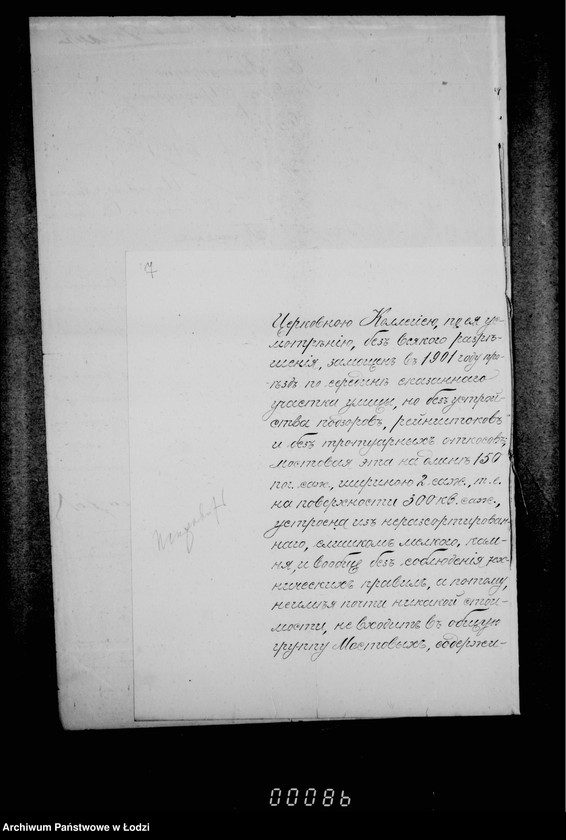 7
Церковною Коллегіею, по ея ус-
мотрѣнію, безъ всякаго разрѣ-
шенія, замощенъ въ 1901 году про-
ѣздъ по серединѣ сказаннаго
участка улицы, но безъ устрой-
ства подзоровъ, рейнштоковъ
и безъ тротуарныхъ откосовъ;
мостовая эта на длинѣ 150
пог. саж., шириною 2 саж., т. е.
на поверхности 300 кв. саж.,
устроена изъ неразсортирован-
наго, слишкомъ мелкаго, кам-
ня, и вообще безъ соблюденія тех-
ническихъ правилъ, и потому,
неимѣя почти никакой стои-
мости, не входитъ въ общую
группу Мостовыхъ, содержи-
00086
Archiwum Państwowe w Łodzi